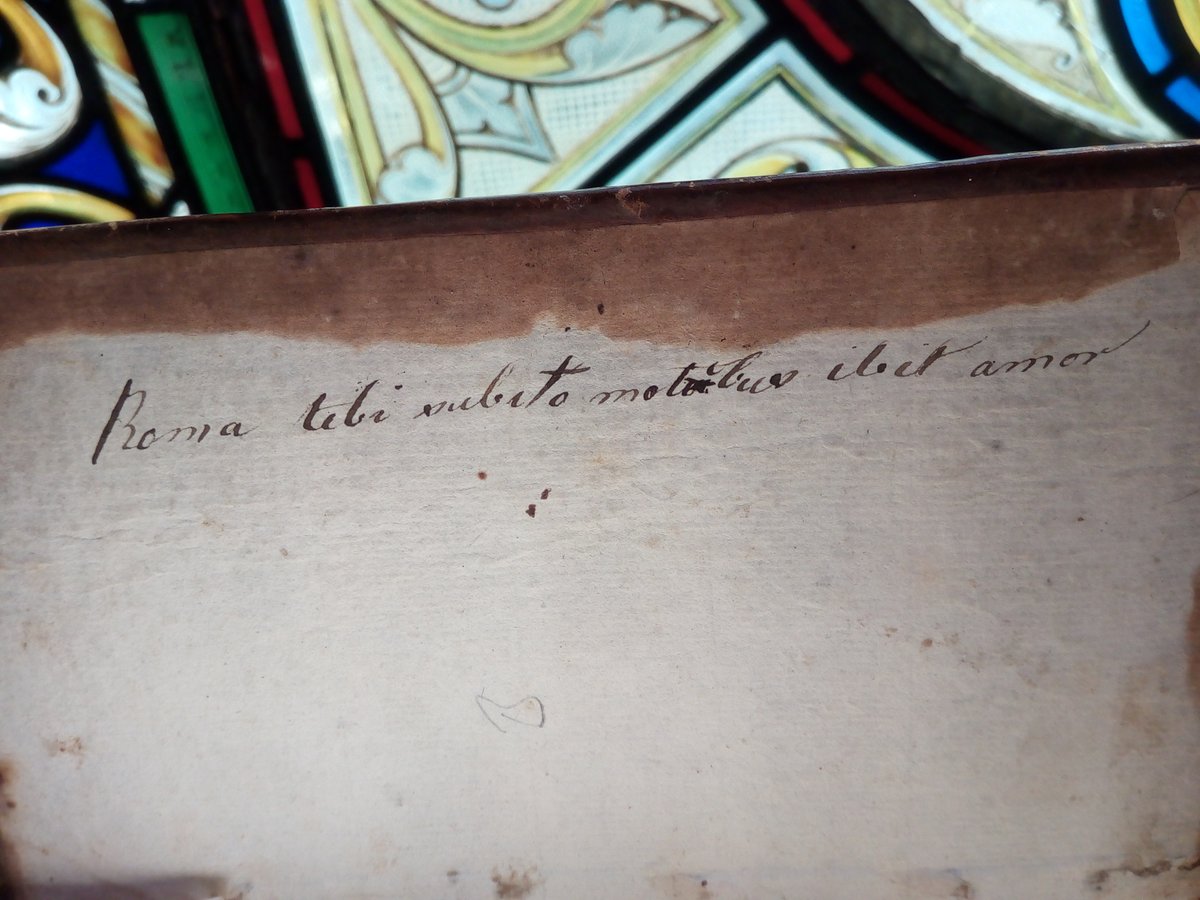 Roma tibi subito motibus ibit amor